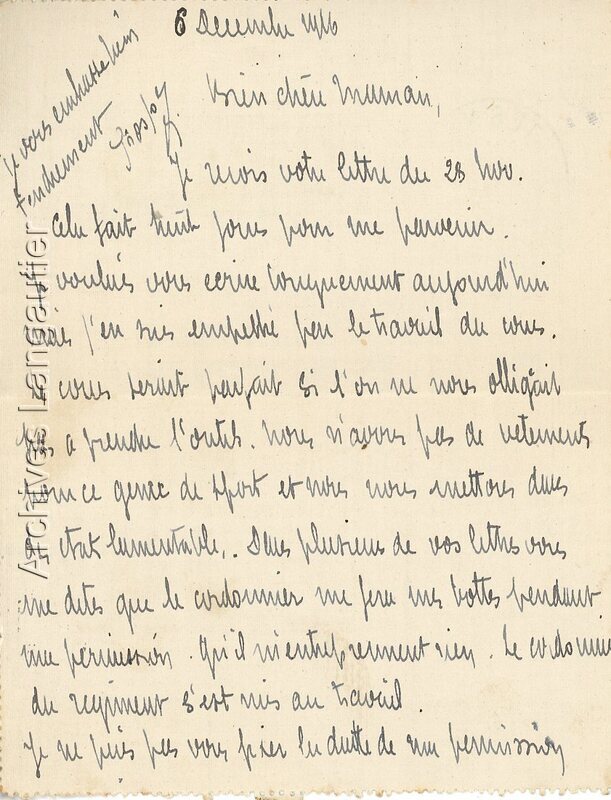 6 Decembre 1916
Bien chère Maman,
Je reçois votre lettre du 28 Nov.
Cela fait huit jours pour me parvenir.
voulais vous ecrire longuement aujourd'hui
j'en suis empeché par le travail du cours.
cours serait parfait si l'on ne nous obligeait
a prendre l'outil. Nous n'avons pas de vetements
pour ce genre de sport et nous nous mettons dans
un etat lamentable.. Dans plusieurs de vos lettres vous
me dites que le cordonnier me fera mes bottes pendant
ma permission. Qu'il n'entreprennent rien. Le cordonnier
du regiment s'est mis au travail.
Je ne puis pas vous fixer la date de ma permission
je vous embrasse bien
tendrement
Archives Langautier